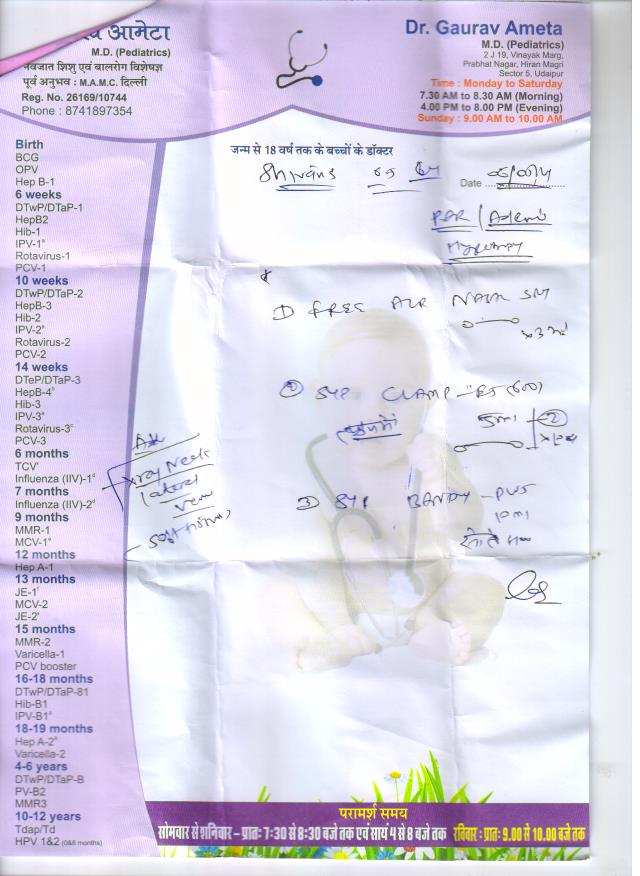 आमेटा
M.D. (Pediatrics)
नवजात शिशु एवं बालरोग विशेषज्ञ
पूर्व अनुभव : M.A.M.C. दिल्ली
Reg. No. 26169/10744
Phone : 8741897354
Dr. Gaurav Ameta
M.D. (Pediatrics)
2 J 19, Vinayak Marg,
Prabhat Nagar, Hiran Magri
Sector 5, Udaipur
Time : Monday to Saturday
7.30 AM to 8.30 AM (Morning)
4.00 PM to 8.00 PM (Evening)
Sunday : 9.00 AM to 10.00 AM
जन्म से 18 वर्ष तक के बच्चों के डॉक्टर
Date
Birth
BCG
OPV
Hep B-1
6 weeks
DTwP/DTaP-1
HepB2
Hib-1
IPV-1ª
Rotavirus-1
PCV-1
10 weeks
DTwP/DTaP-2
HepB-3
Hib-2
IPV-2ª
Rotavirus-2
PCV-2
14 weeks
DTeP/DTaP-3
HepB-4ᵇ
Hib-3
IPV-3ª
Rotavirus-3ᶜ
PCV-3
6 months
TCV
Influenza (IIV)-1ᵈ
7 months
Influenza (IIV)-2ᵈ
9 months
MMR-1
MCV-1
12 months
Hep A-1
13 months
JE-1
MCV-2
JE-2
15 months
MMR-2
Varicella-1
PCV booster
16-18 months
DTwP/DTaP-81
Hib-B1
IPV-B1ª
18-19 months
Hep A-2
Varicella-2
4-6 years
DTwP/DTaP-B
PV-B2
MMR3
10-12 years
Tdap/Td
HPV 1&2 (0&6 months)
① FREE AIR NASR
② SYP CLAMP
5ml
③ SYP BANDY - PLUS
10ml
Xray Neck
lateral
view
परामर्श समय
सोमवार से शनिवार – प्रातः 7:30 से 8:30 बजे तक एवं सायं 4 से 8 बजे तक रविवार : प्रातः 9.00 से 10.00 बजे तक